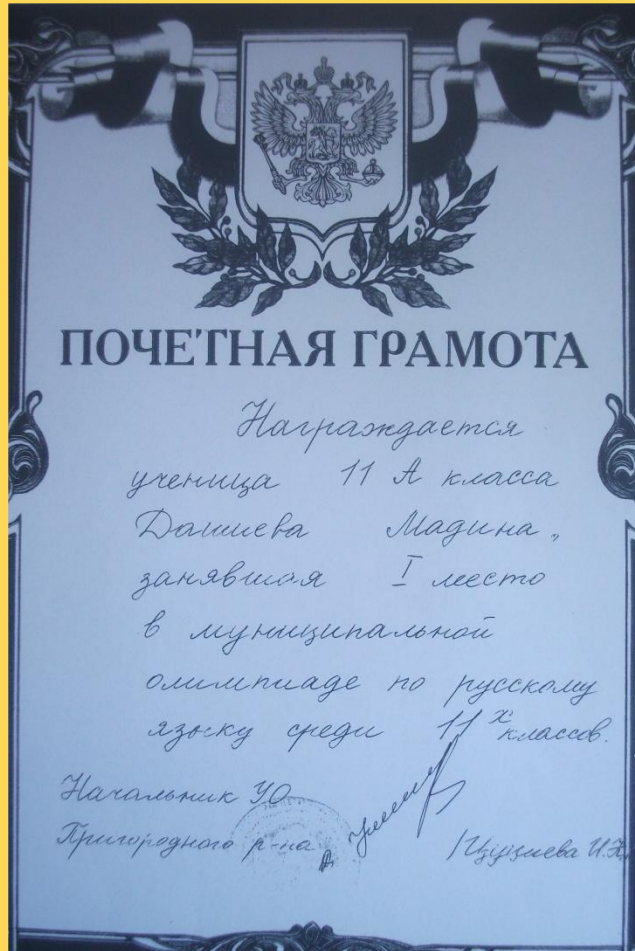 ПОЧЕТНАЯ ГРАМОТА
Награждается
ученица 11 А класса
Дашиева Мадина,
занявшая I место
в муниципальной
олимпиаде по русскому
языку среди 11х классов.
Начальник УО
Пригородного р-на